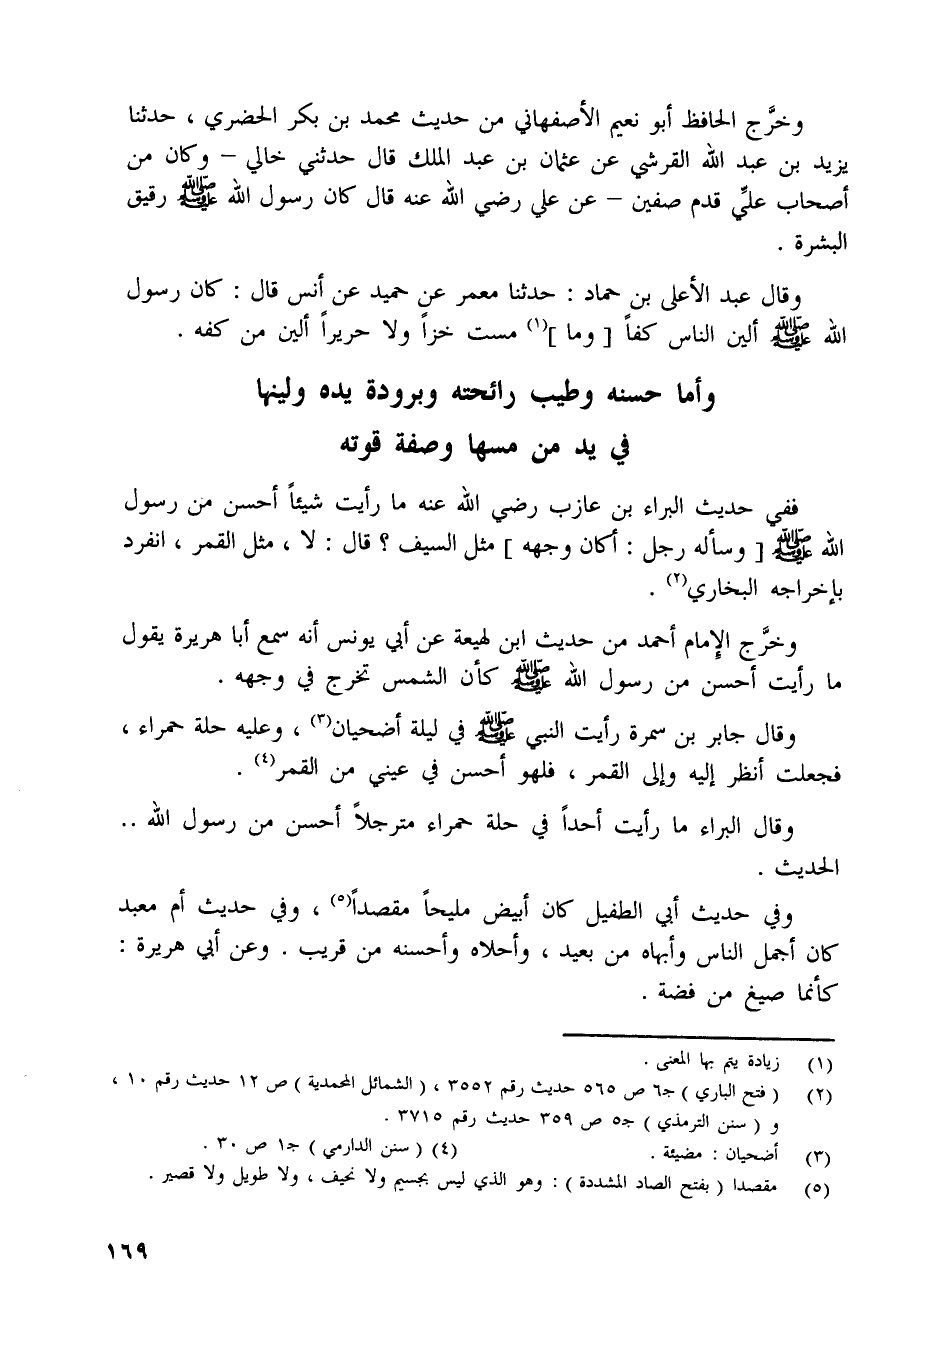 وخرَّج الحافظ أبو نعيم الأصفهاني من حديث محمد بن بكر الحضري ، حدثنا
يزيد بن عبد الله القرشي عن عثمان بن عبد الملك قال حدثني خالي – وكان من
أصحاب عليٍّ قدم صفين – عن علي رضي الله عنه قال كان رسول الله ﷺ رقيق
البشرة .
وقال عبد الأعلى بن حماد : حدثنا معمر عن حميد عن أنس قال : كان رسول
الله ﷺ ألين الناس كفاً [ وما ](١) مست خزاً ولا حريراً ألين من كفه .
وأما حسنه وطيب رائحته وبرودة يده ولينها
في يد من مسها وصفة قوته
ففي حديث البراء بن عازب رضي الله عنه ما رأيت شيئاً أحسن من رسول
الله ﷺ [ وسأله رجل : أكان وجهه ] مثل السيف ؟ قال : لا ، مثل القمر ، انفرد
بإخراجه البخاري(٢) .
وخرَّج الإمام أحمد من حديث ابن لهيعة عن أبي يونس أنه سمع أبا هريرة يقول
ما رأيت أحسن من رسول الله ﷺ كأن الشمس تخرج في وجهه .
وقال جابر بن سمرة رأيت النبي ﷺ في ليلة أضحيان(٣) ، وعليه حلة حمراء ،
فجعلت أنظر إليه وإلى القمر ، فلهو أحسن في عيني من القمر(٤) .
وقال البراء ما رأيت أحداً في حلة حمراء مترجلاً أحسن من رسول الله ..
الحديث .
وفي حديث أبي الطفيل كان أبيض مليحاً مقصداً(٥) ، وفي حديث أم معبد
كان أجمل الناس وأبهاه من بعيد ، وأحلاه وأحسنه من قريب . وعن أبي هريرة :
كأنما صيغ من فضة .
(١) زيادة يتم بها المعنى .
(٢) ( فتح الباري ) جـ٦ ص ٥٦٥ حديث رقم ٣٥٥٢ ، ( الشمائل المحمدية ) ص ١٢ حديث رقم ١٠ ،
و ( سنن الترمذي ) جـ٥ ص ٣٥٩ حديث رقم ٣٧١٥ .
(٣) أضحيان : مضيئة . (٤) ( سنن الدارمي ) جـ١ ص ٣٠ .
(٥) مقصدا ( بفتح الصاد المشددة ) : وهو الذي ليس بجسيم ولا نحيف ، ولا طويل ولا قصير .
١٦٩